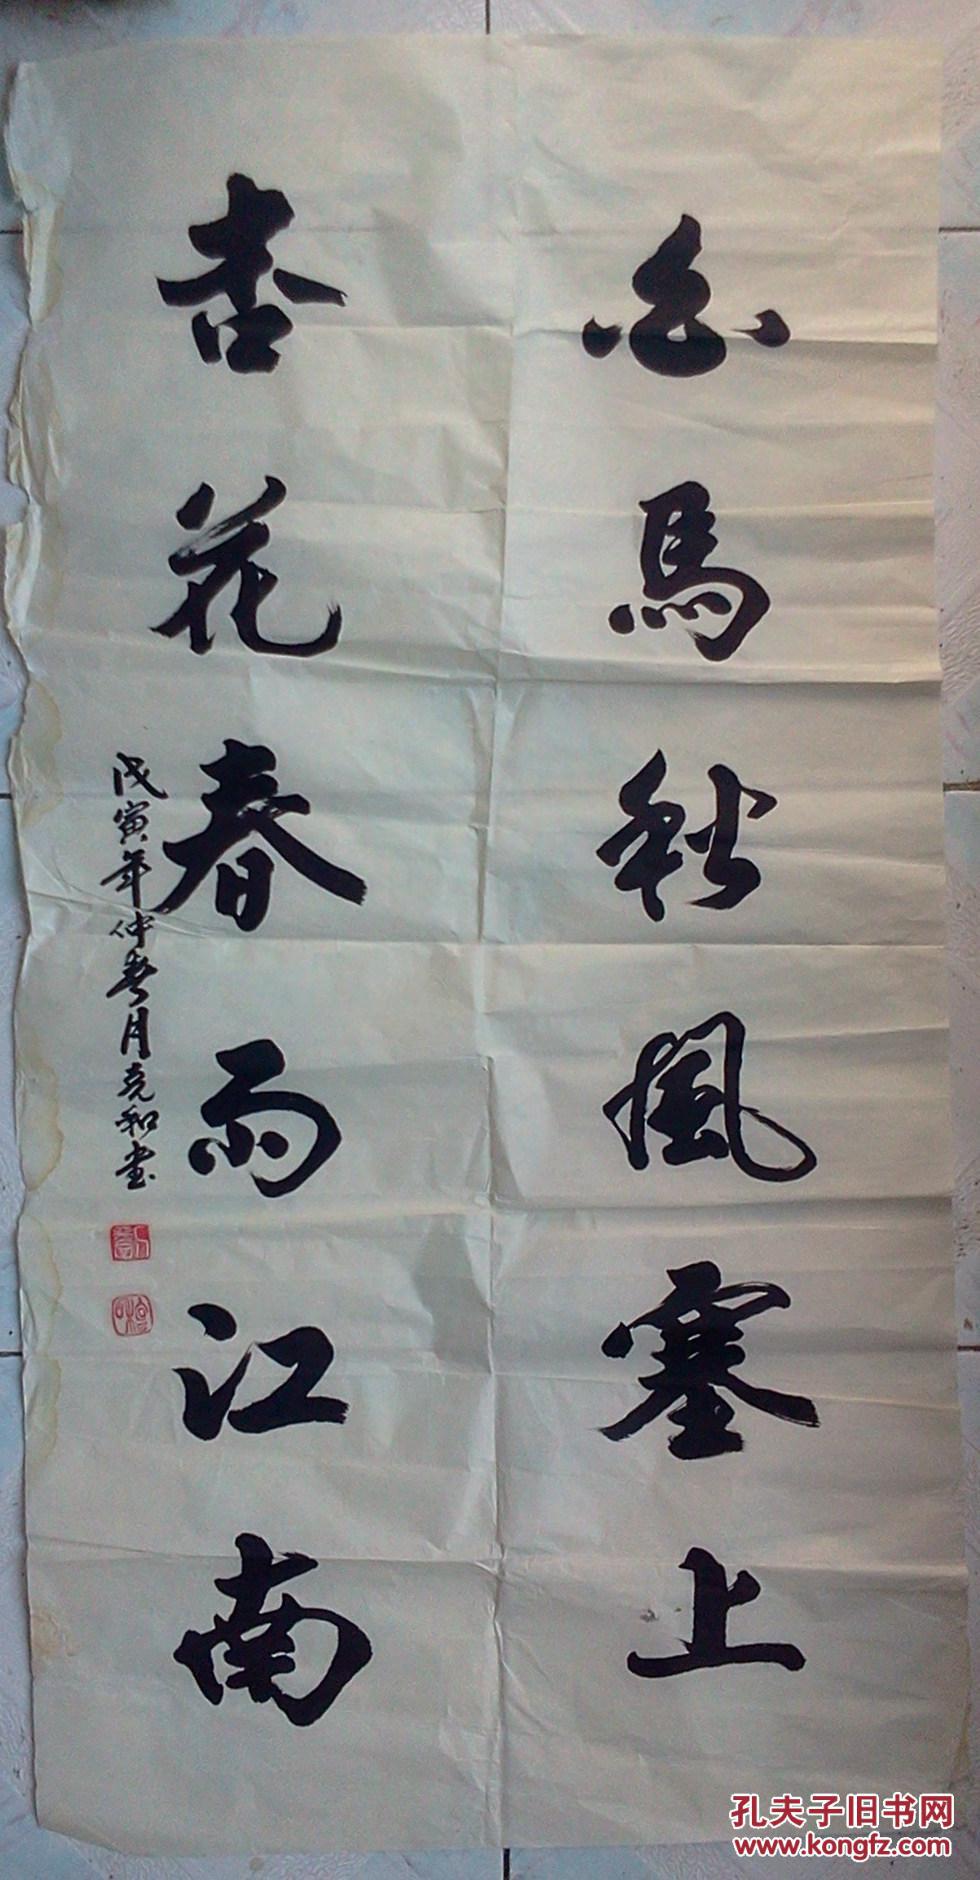 馬秋風塞上
杏花春雨江南
戊寅年仲春月克和书
孔夫子旧书网
www.kongfz.com